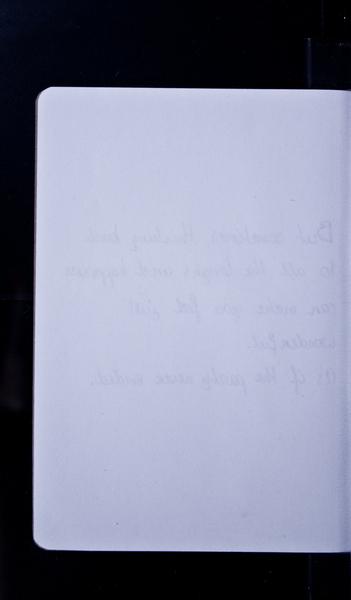 But sometimes thinking back
to all the laughs and happiness
can make you feel just
wonderful.
As if the party never ended.